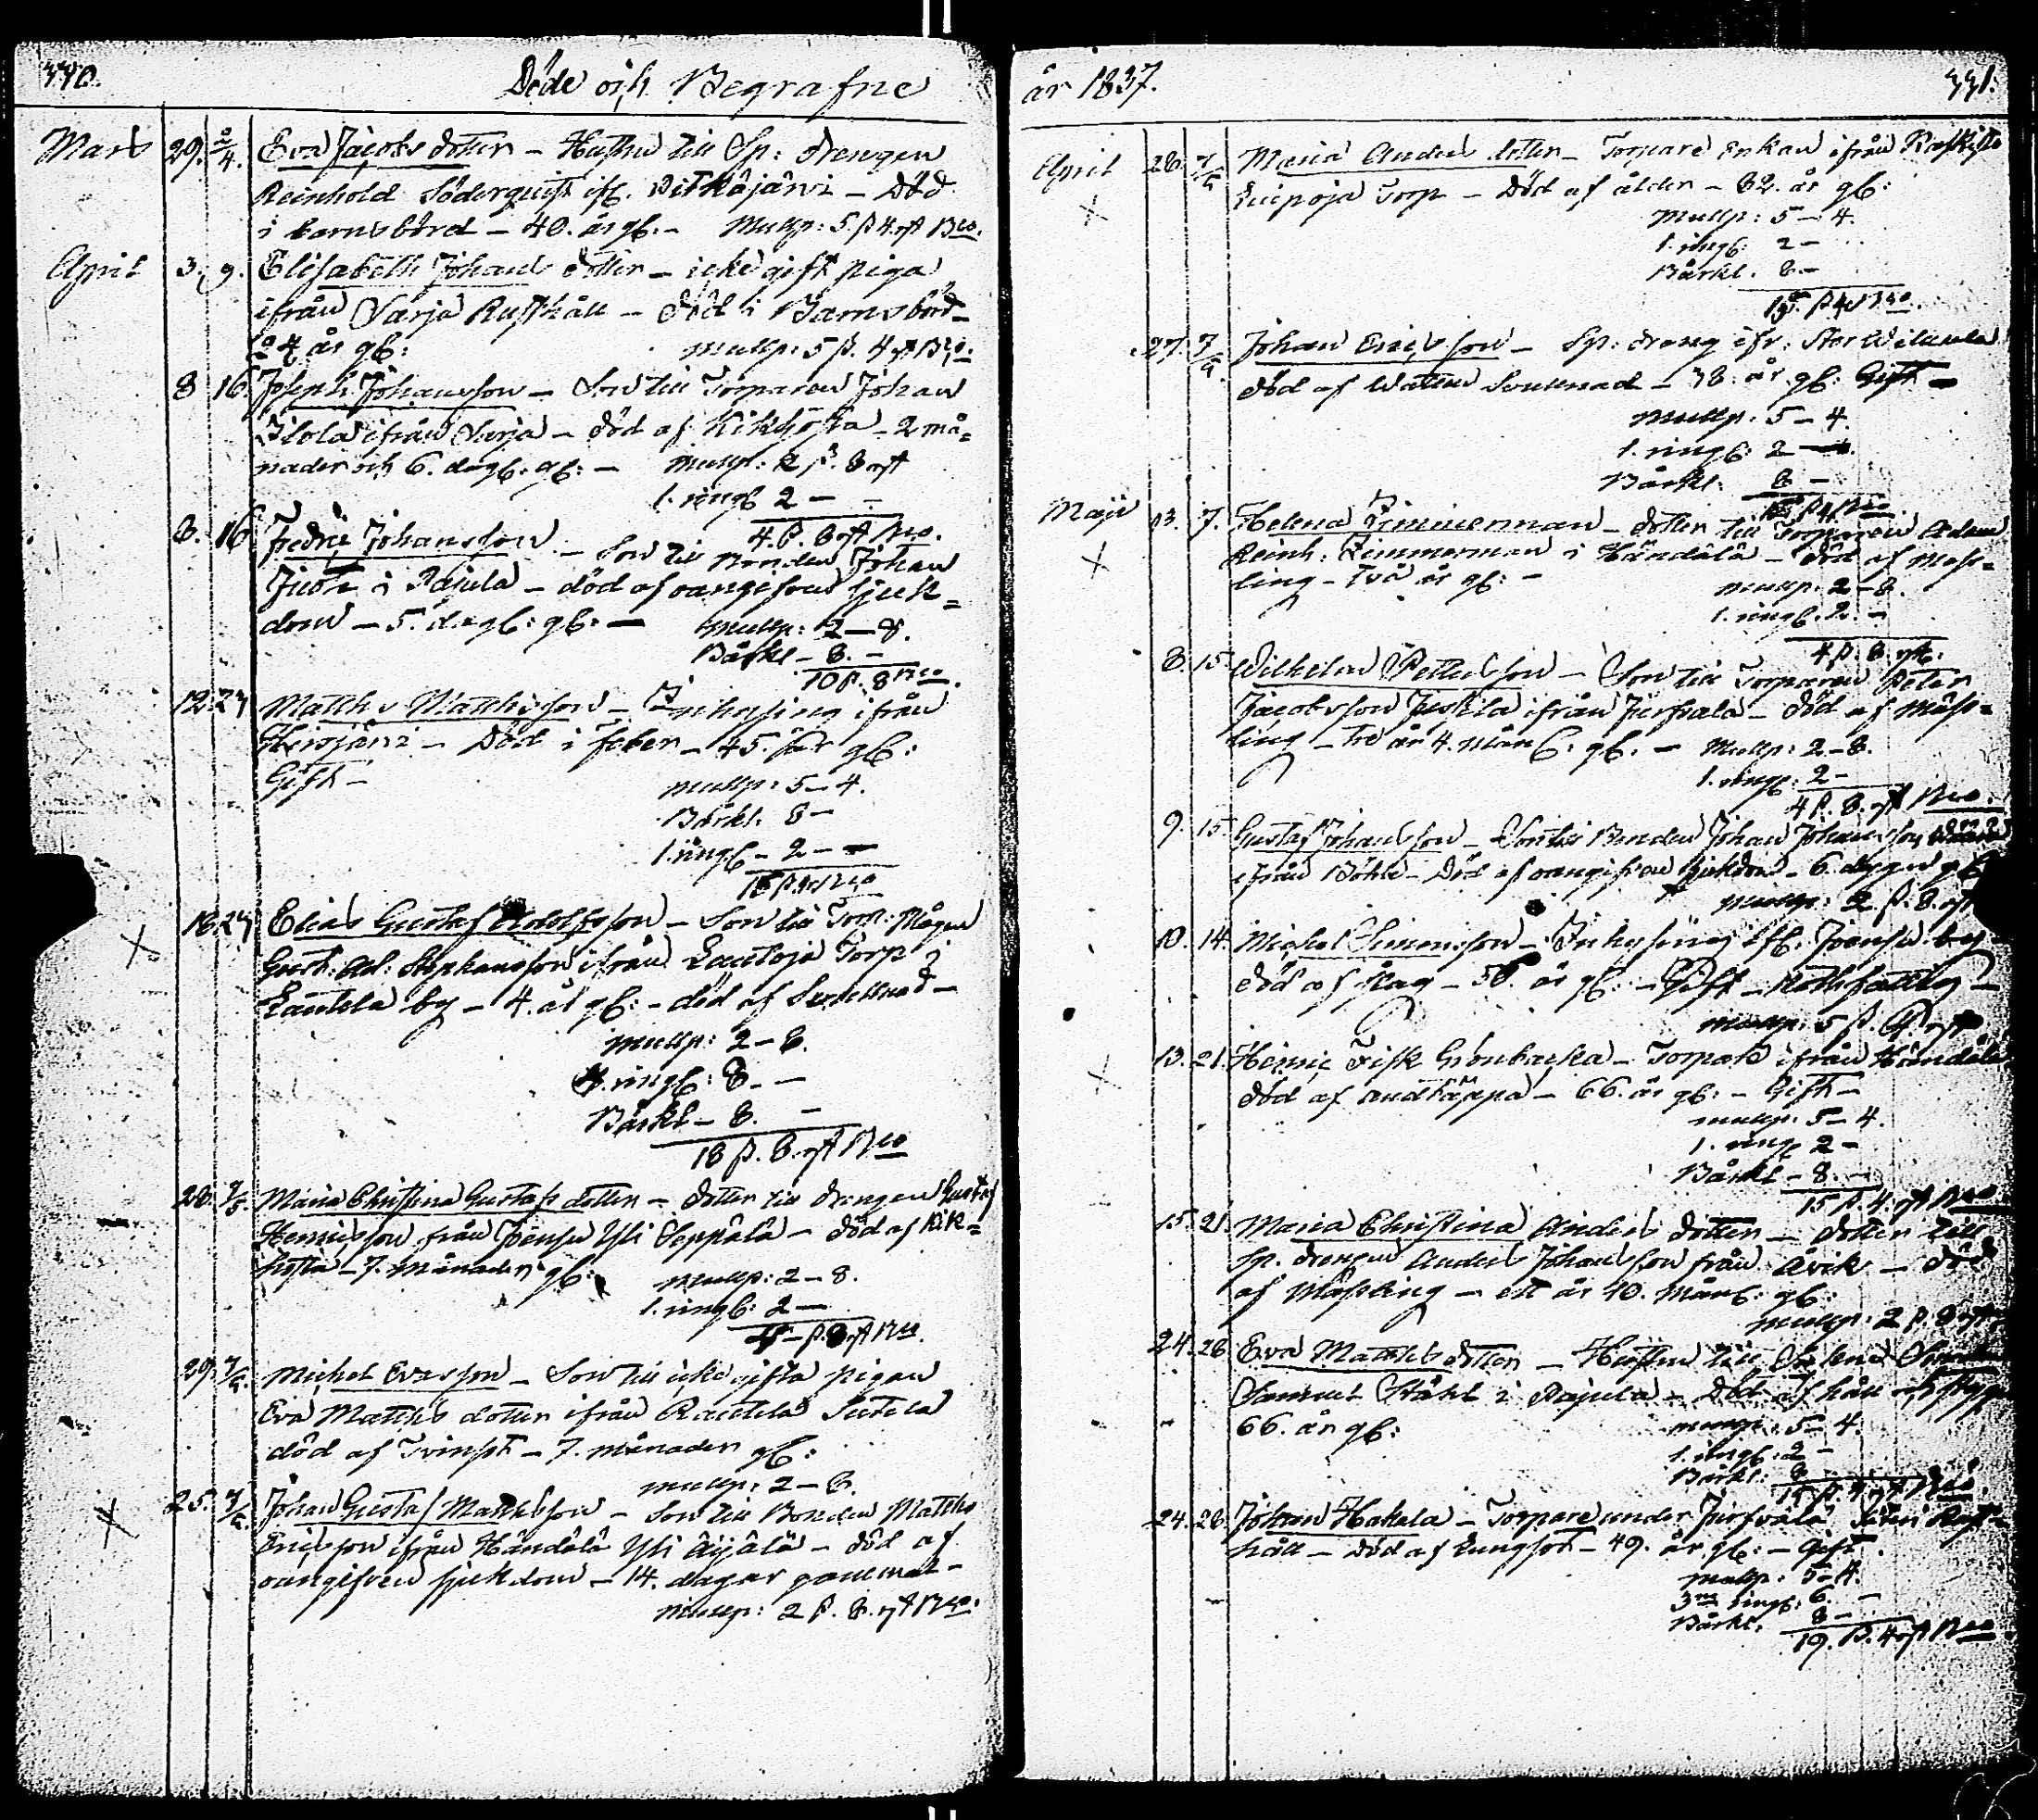 440.
Döde och Begrafne
Mars 29. 2/4. Eva Jacobs dotter – Hustru till Sp: drengen
Reinhold Söderquist ifr. Vitkäjärvi – Död
i barnsbörd – 40. år gl: – Mullp: 5. β 4. rst Bco.
April 3. 9. Elisabeth Johans dotter – icke gift piga
ifrån Sarja Rusthåll – död i Barnsbörd –
år gl: Mullp: 5 β. 4 rst Bco.
8 16. Joseph Johansson – Son till Torparen Johan
Ilola ifrån Sarja – död af Kikhosta – 2 må=
nader och 6. dag. gl: – Mullp: 2 β. 8 rst
1. ringn. 2 – –
4. β. 8 rst Bco.
8. 16 Fredric Johansson – Son till Bonden Johan
i Rajula – död af oangifven sjuk=
dom – 5. dag. gl: – Mullp: 2 – 8.
Bårkl – 8. –
10 β. 8 Bco.
12. 24 Matths Matthsson – Inhysing ifrån
– Död i feber – 45. år gl:
Gift – Mullp: 5 – 4.
Bårkl. 8 –
1. ringn. – 2 – –
15 β 4 rst Bco
16. 24 Elias Gustaf Adolfsson – Son till Torp: Mågen
Gust: Ad: Stephansson ifrån Lautoja Torp i
Lautela by – 4. år gl: – död af –
Mullp: 2 – 8.
4. ringn: 8. –
Bårkl – 8. –
18 β. 8. rst Bco
20. 7/5. Maria Christina Gustafs dotter – dotter till drengen Gustaf
Henricsson från Joensu Yli Seppälä – död af Kik=
hosta – 7. månader gl: Mullp: 2 – 8.
1. ringn: 2 –
4 – β. 8 rst Bco.
29. 7/5. Michel Evasson – Son till icke gifta pigan
Eva Matths dotter ifrån Rautela
död af Tvinsot – 7. månader gl:
Mullp: 2 – 8.
25. 7/5. Johan Gustaf Matthsson – Son till Bonden Matths
Ericsson ifrån Händälä Yli Äijälä – död af
oangifven sjukdom – 14. dagar gammal –
Mullp: 2 β. 8. rst Bco.
år 1837.
441.
April 26. 7/5 Maria Anders dotter – Torpare Enkan ifrån
Torp – Död af ålder – 82. år gl:
Mullp: 5 – 4.
1. ringn: 2 –
Bårkl. 8. –
15. β 4 rst Bco.
27. 7/5. Johan Ericsson – Sp: dreng ifr: Stor
död af Watten – 38. år gl: Gift –
Mullp: 5 – 4.
1. ringn: 2 –
Bårkl. 8 –
15 β 4 rst Bco.
Maji 3. 7. Helena Zimmerman – dotter till Torparen Adam
Reinh: Zimmerman i Händälä – död af Mäss=
ling – Två år gl: – Mullp: 2 – 8.
1. ringn. 2. –
4 β. 8. rst.
8. 15 Wilhelm Pettersson – Son till Torparen Peter
Jacobsson ifrån Jurvala – död af Mäss=
ling – Tre år 4. mån. gl. – Mullp: 2 – 8.
1. ringn: 2 –
4 β. 8. rst Bco.
9. 15 Gustaf Johansson – Son till Bonden Johan Johansson
ifrån Böhle – Död af oangifven sjukdom – 6. dygn gl
Mullp: 2. β. 8. rst
10. 14. Michel Simonsson – Inhysing ifr. Joensu by –
död af slag – 56. år gl: – Gift – Nothfattig –
Mullp: 5 β. 4. rst
13. 21. Henric Fisk Grönbacka – Torpare ifrån Händälä
död af andtäppa – 66. år gl: – Gift –
Mullp: 5 – 4.
1. ringn 2 –
Bårkl – 8. –
15 β. 4. rst Bco
15. 21. Maria Christina Anders dotter – dotter till
Sp. drengen Anders Johansson från Åvik – död
af Mässling – ett år 10. mån. gl:
Mullp: 2 β. 8 rst
24. 28. Eva Matths dotter – Hustru till
Samuel Ståhl i Rajula – Död af håll och styng
66. år gl: Mullp: 5 – 4.
1. ringn: 2 –
Bårkl: 8 –
15 β. 4 rst Bco.
24. 28. Johan Hakala – Torpare under Jurvala Säteri Rust=
håll – Död af Lungsot – 49. år gl: – Gift.
Mullp: 5 – 4.
3ne ringn: 6. –
Bårkl. 8 –
19. β. 4 rst Bco